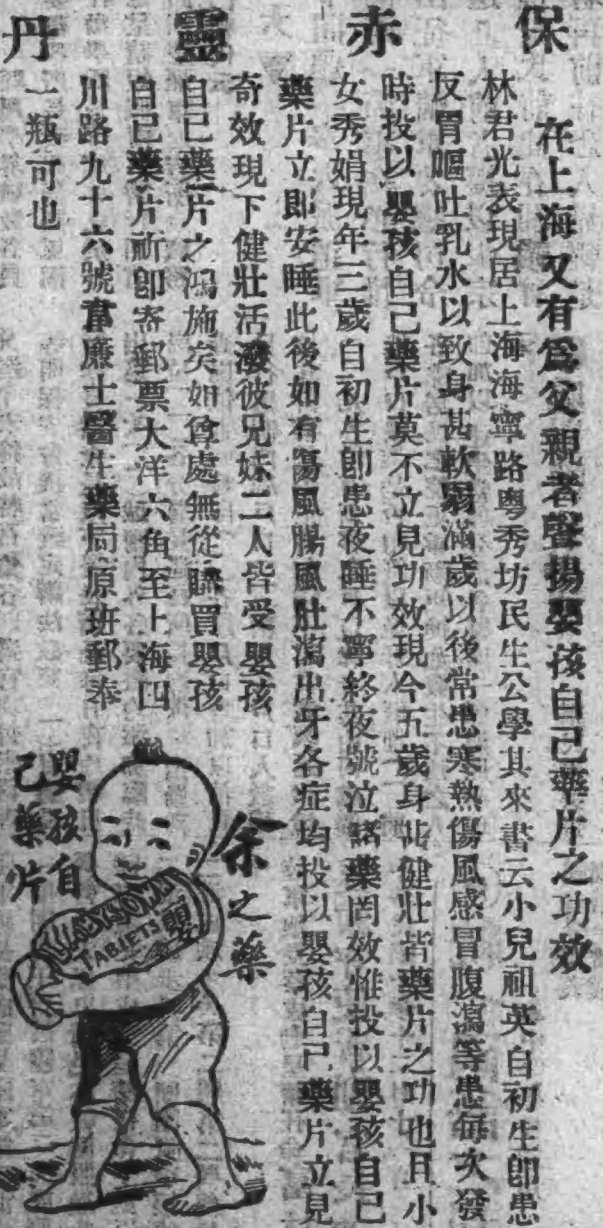 保赤靈丹
在上海又有爲父親者聲揚嬰孩自己藥片之功效
林君光表現居上海海寗路粤秀坊民生公學其來書云小兒祖英自初生卽患
反胃嘔吐乳水以致身甚軟弱滿歲以後常患寒熱傷風感冒腹瀉等患每次發
時投以嬰孩自己藥片莫不立見功效現今五歲身甚健壯皆藥片之功也且小
女秀娟現年三歲自初生卽患夜睡不寧終夜號泣諸藥罔效惟投以嬰孩自己
藥片立卽安睡此後如有傷風腸風肚瀉出牙各症均投以嬰孩自己藥片立見
奇效現下健壯活潑彼兄妹二人皆受嬰孩
自己藥片之鴻施矣如尊處無從購買嬰孩
自己藥片祈卽寄郵票大洋六角至上海四
川路九十六號韋廉士醫生藥局原班郵奉
一瓶可也
余之藥
嬰孩自
己藥片
BABY'S OWN
TABLETS
嬰